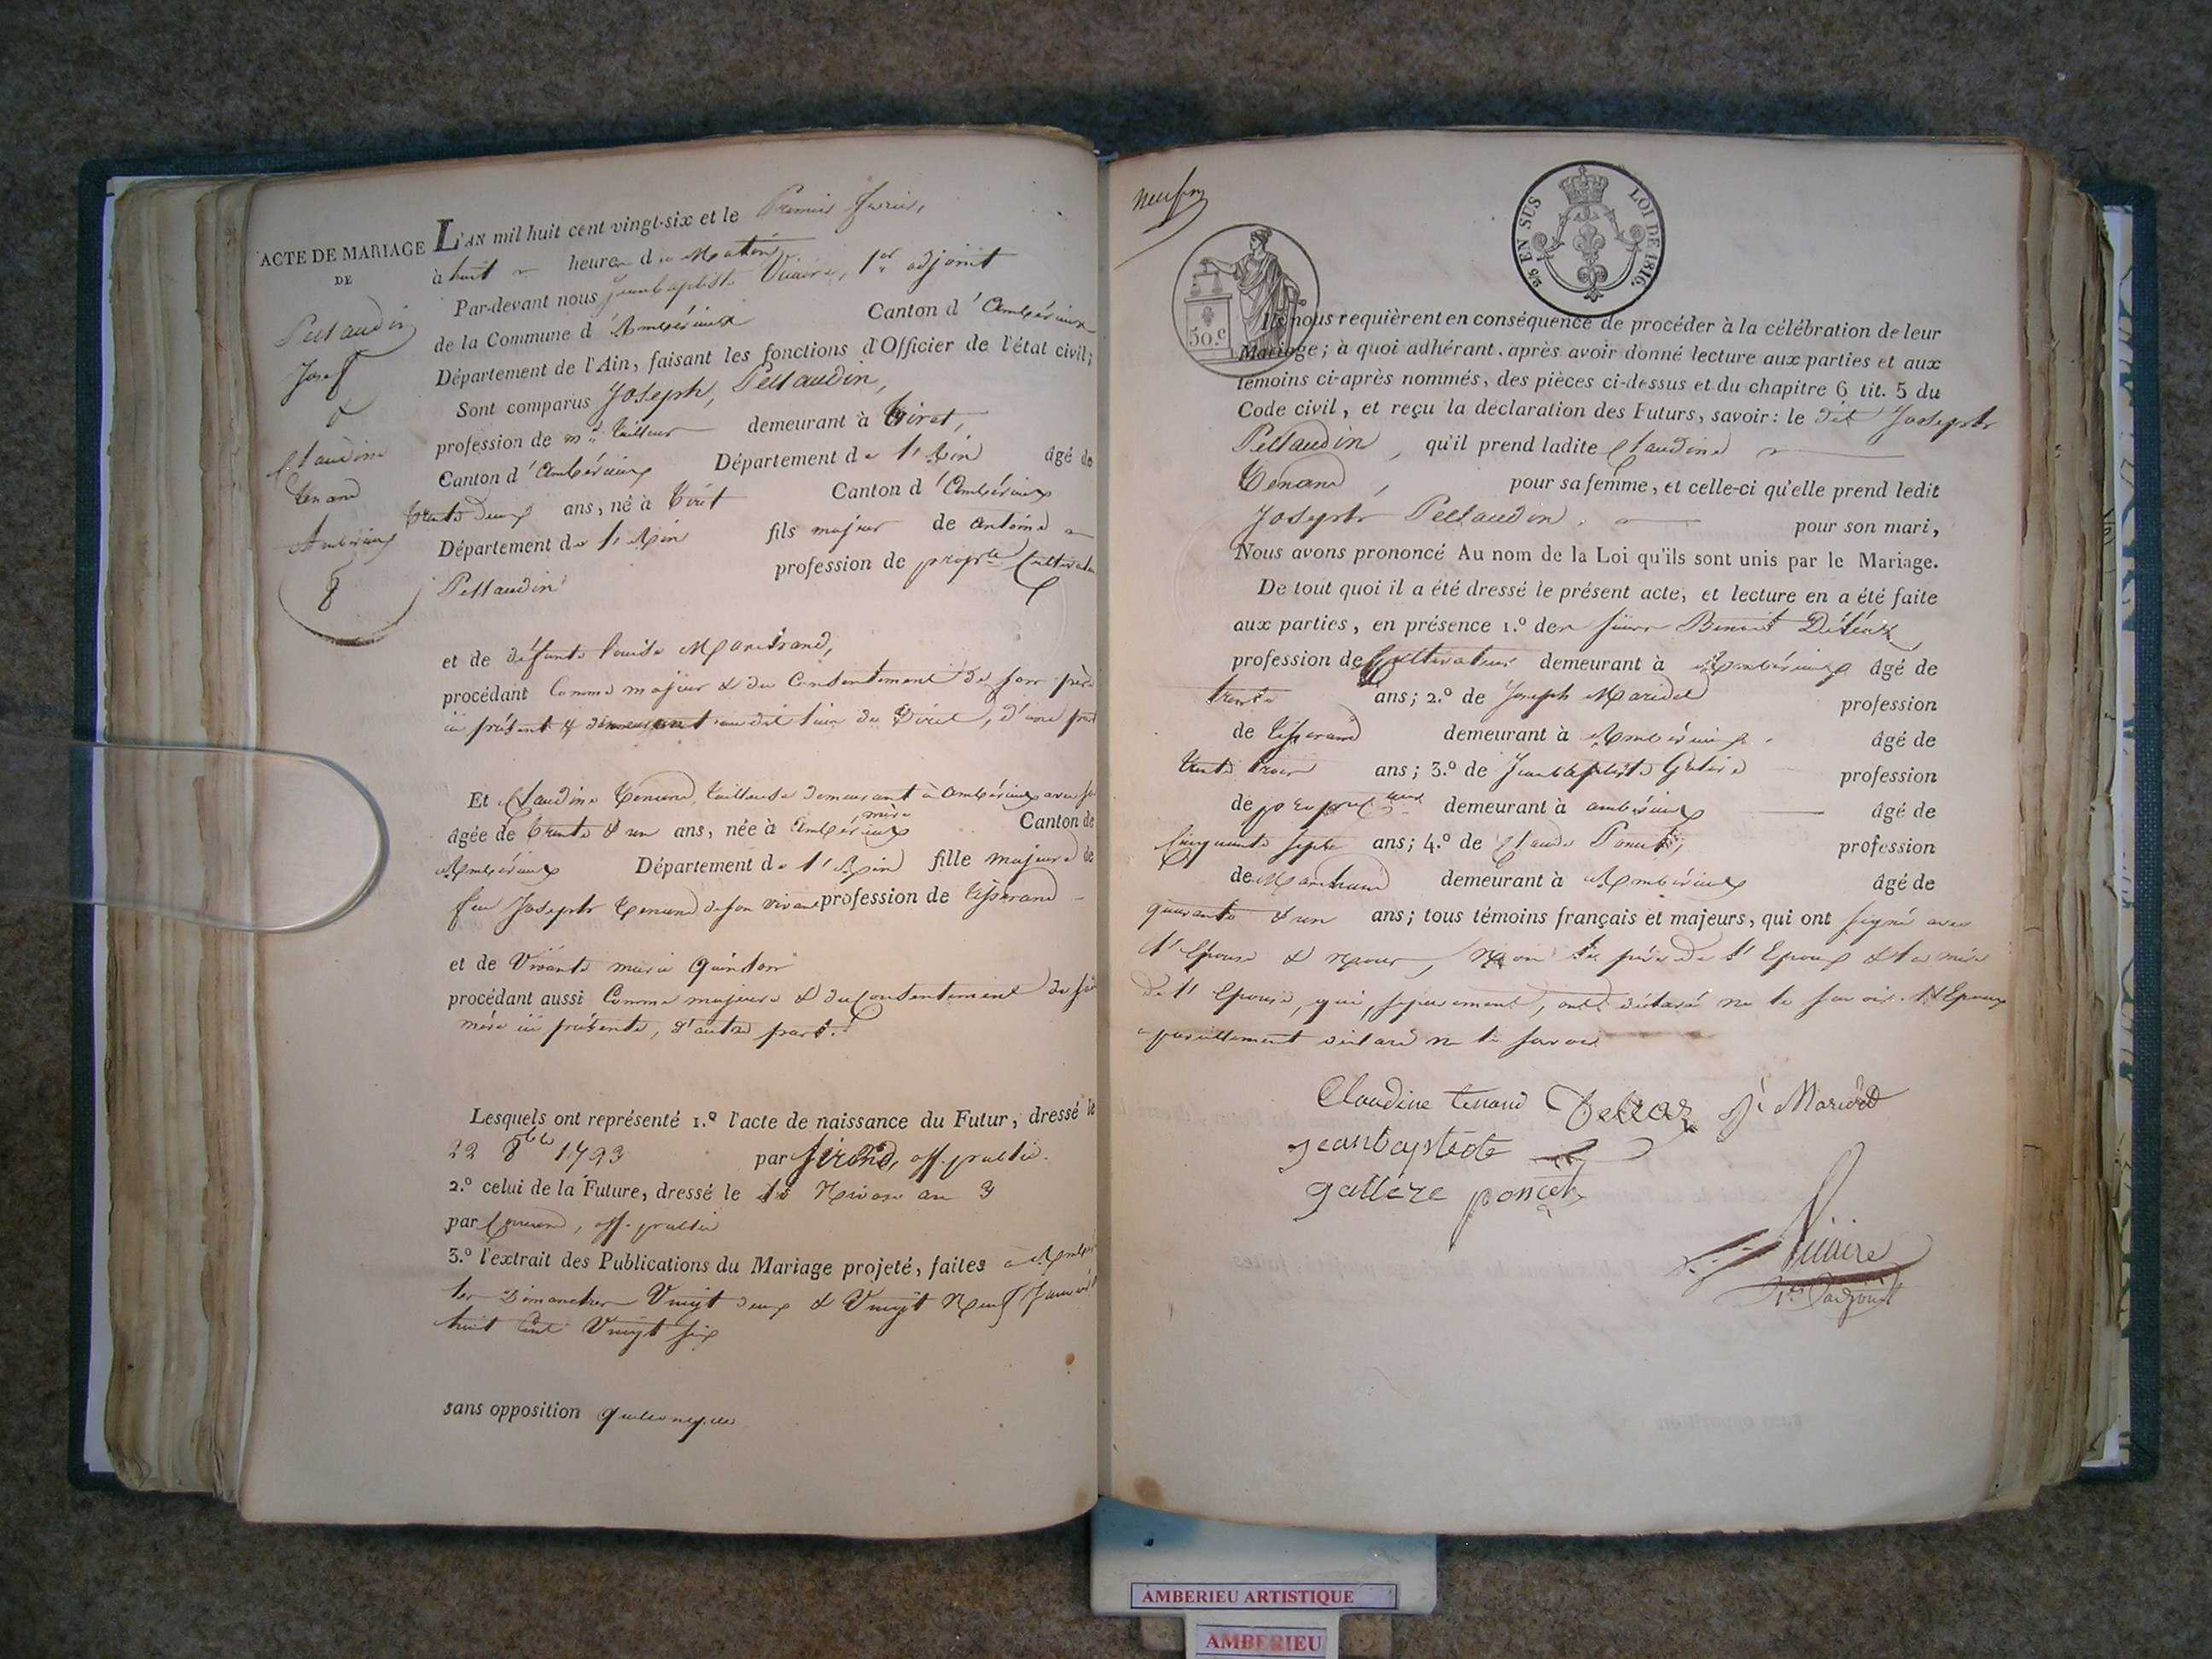 ACTE DE MARIAGE
DE
Pellaudin
Josef
&
Claudine
Tenand
Ambérieux
8
L'AN mil huit cent vingt-six et le Premier février,
à huit heures du Matin
Par-devant nous Jeanbaptiste Vicaire, 1er adjoint
de la Commune d'Ambérieux Canton d'Ambérieux
Département de l'Ain, faisant les fonctions d'Officier de l'état civil;
Sont comparus Joseph, Pellaudin,
profession de md tailleur demeurant à Tiret,
Canton d'Ambérieux Département de l'Ain âgé de
trente deux ans, né à Tiret Canton d'Ambérieux
Département de l'Ain fils majeur de antoine
Pellaudin profession de propre Cultivateur
et de défunte Louise Marchand,
procédant Comme majeur & du Consentement de son père
ici présent & demeurant au dit lieu de Tiret, d'une part
Et Claudine Tenand, tailleuse demeurant à Ambérieux avec sa
mère
âgée de trente & un ans, née à Ambérieux Canton de
Ambérieux Département de l'Ain fille majeure de
feu Joseph Tenand de son vivant profession de tisserand
et de Vivante marie Quinson
procédant aussi Comme majeure & du Consentement de sa
mère ici présente, d'autre part.
Lesquels ont représenté 1.º l'acte de naissance du Futur, dressé le
22 8bre 1793 par off. public.
2.º celui de la Future, dressé le Nivose an 3
par off. public
3.º l'extrait des Publications du Mariage projeté, faites à Ambérieux
les Dimanches Vingt deux & Vingt Neuf Janvier
huit Cent Vingt six
sans opposition quelconque
neuf
2/5 EN SUS LOI DE 1816.
50.c
Ils nous requièrent en conséquence de procéder à la célébration de leur
Mariage; à quoi adhérant, après avoir donné lecture aux parties et aux
témoins ci-après nommés, des pièces ci-dessus et du chapitre 6 tit. 5 du
Code civil, et reçu la déclaration des Futurs, savoir: le dit Joseph
Pellaudin, qu'il prend ladite Claudine
Tenand, pour sa femme, et celle-ci qu'elle prend ledit
Joseph Pellaudin, pour son mari,
Nous avons prononcé Au nom de la Loi qu'ils sont unis par le Mariage.
De tout quoi il a été dressé le présent acte, et lecture en a été faite
aux parties, en présence 1.º des sieurs Benoit
profession de Cultivateur demeurant à Ambérieux âgé de
trente ans; 2.º de Joseph Maridet profession
de tisserand demeurant à Ambérieux âgé de
trente trois ans; 3.º de Jeanbaptiste profession
de demeurant à ambérieux âgé de
Cinquante sept ans; 4.º de Claude Poncet, profession
de Marchand demeurant à Ambérieux âgé de
quarante & un ans; tous témoins français et majeurs, qui ont signé avec
l'Epouse & nous, Non le père de l'Epoux & la mère
de l'Epouse, qui, séparement, ont déclaré ne le savoir. l'Epoux
a pareillement déclaré ne le savoir
Claudine tenand J. Maridet
jeanbaptiste
gallere poncet
Vicaire
1er adjoint
AMBERIEU ARTISTIQUE
AMBERIEU